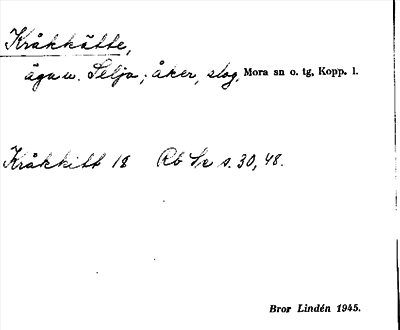 Kråkkätte,
ägu u. Selja; åker, slog, Mora sn o. tg, Kopp. l.
Kråkkitt 18 Rb Se s. 30, 48.
Bror Lindén 1945.